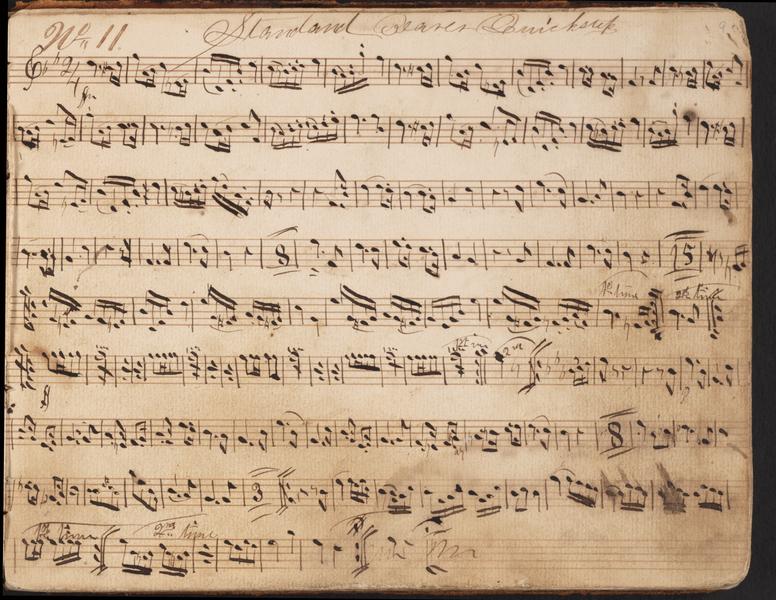 No 11. Standard Bearer Quickstep
2/4
8
15
1st time 2nd time
8
3
1st time 2nd time